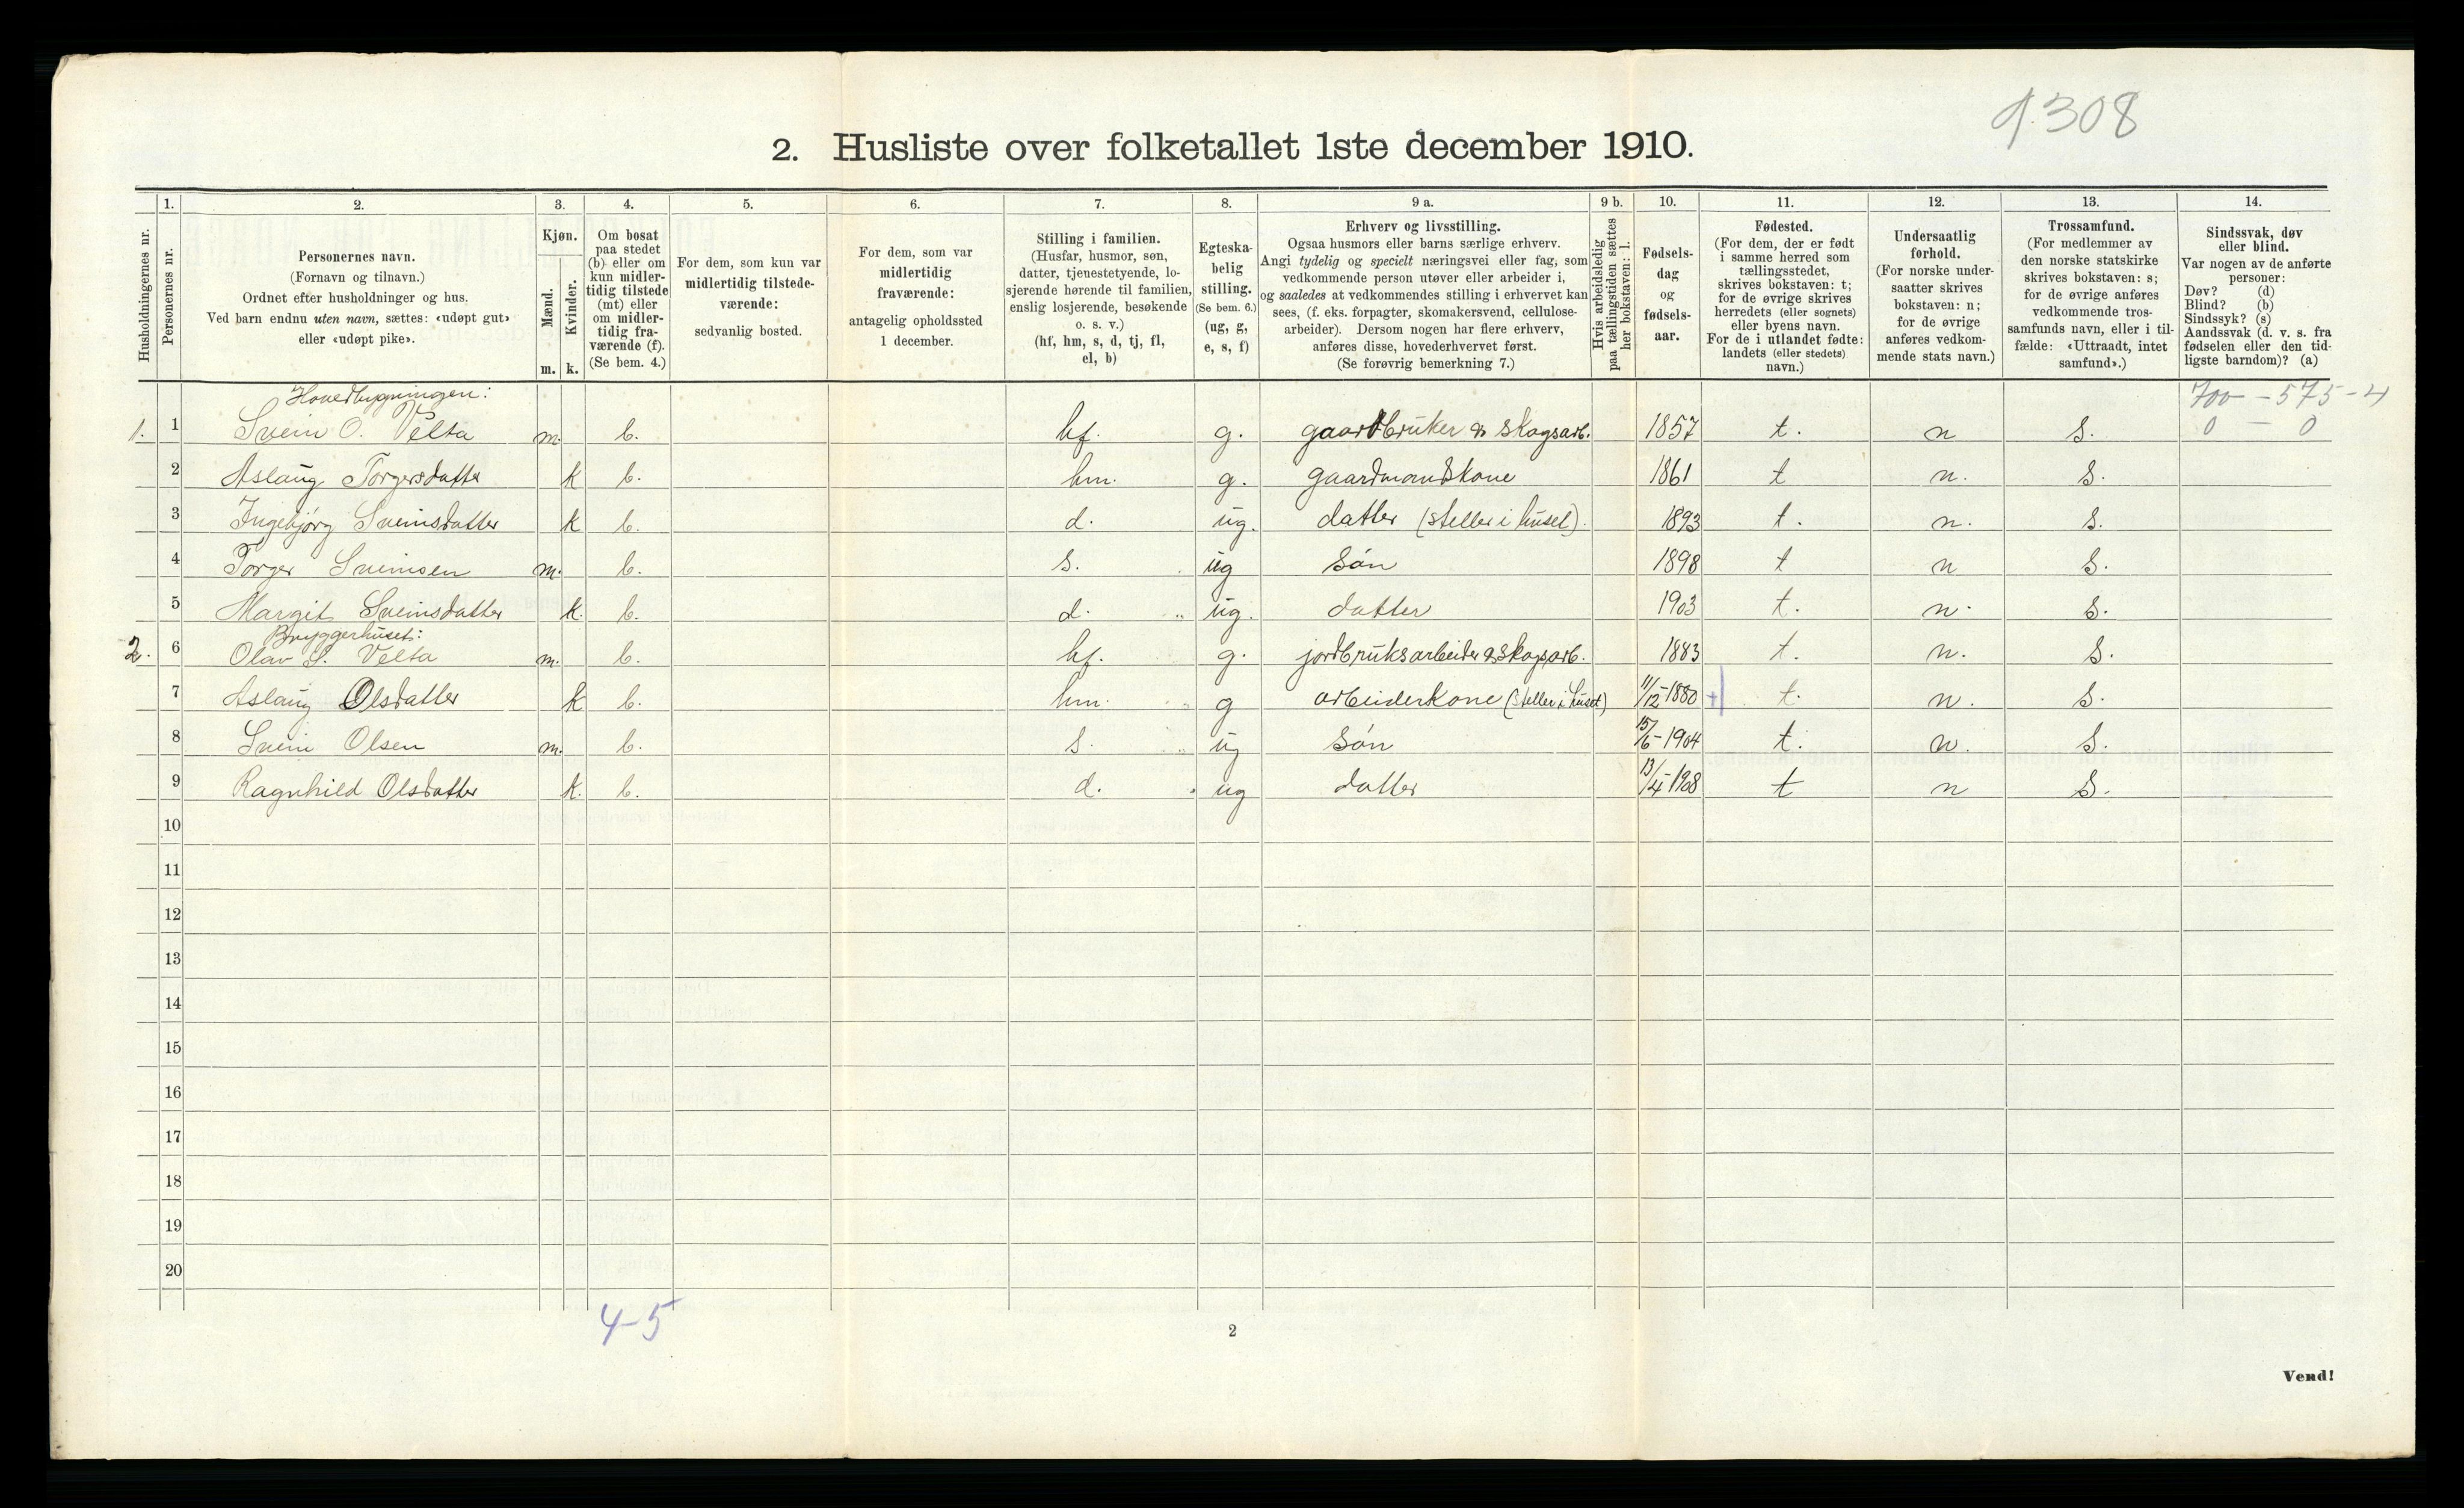 9.308
2. Husliste over folketallet 1ste december 1910.
Husholdningernes nr.
1.
Personernes nr.
2.
Personernes navn.
(Fornavn og tilnavn.)
Ordnet efter husholdninger og hus.
Ved barn endnu uten navn, sættes: «udøpt gut»
eller «udøpt pike».
3.
Kjøn.
Mænd.
Kvinder.
m. k.
4.
Om bosat
paa stedet
(b) eller om
kun midler-
tidig tilstede
(mt) eller
om midler-
tidig fra-
værende (f).
(Se bem. 4.)
5.
For dem, som kun var
midlertidig tilstede-
værende:
sedvanlig bosted.
6.
For dem, som var
midlertidig
fraværende:
antagelig opholdssted
1 december.
7.
Stilling i familien.
(Husfar, husmor, søn,
datter, tjenestetyende, lo-
sjerende hørende til familien,
enslig losjerende, besøkende
o. s. v.)
(hf, hm, s, d, tj, fl,
el, b)
8.
Egteska-
belig
stilling.
(Se bem. 6.)
(ug, g,
e, s, f)
9 a.
Erhverv og livsstilling.
Ogsaa husmors eller barns særlige erhverv.
Angi tydelig og specielt næringsvei eller fag, som
vedkommende person utøver eller arbeider i,
og saaledes at vedkommendes stilling i erhvervet kan
sees, (f. eks. forpagter, skomakersvend, cellulose-
arbeider). Dersom nogen har flere erhverv,
anføres disse, hovederhvervet først.
(Se forøvrig bemerkning 7.)
9 b.
Hvis arbeidsledig
paa tællingstiden sættes
her bokstaven: l.
10.
Fødsels-
dag
og
fødsels-
aar.
11.
Fødested.
(For dem, der er født
i samme herred som
tællingsstedet,
skrives bokstaven: t;
for de øvrige skrives
herredets (eller sognets)
eller byens navn.
For de i utlandet fødte:
landets (eller stedets)
navn.)
12.
Undersaatlig
forhold.
(For norske under-
saatter skrives
bokstaven: n;
for de øvrige
anføres vedkom-
mende stats navn.)
13.
Trossamfund.
(For medlemmer av
den norske statskirke
skrives bokstaven: s;
for de øvrige anføres
vedkommende tros-
samfunds navn, eller i til-
fælde: «Uttraadt, intet
samfund».)
14.
Sindssvak, døv
eller blind.
Var nogen av de anførte
personer:
Døv? (d)
Blind? (b)
Sindssyk? (s)
Aandssvak (d. v. s. fra
fødselen eller den tid-
ligste barndom)? (a)
Hovedbygningen:
700 - 575 - 4
0 - 0
1. 1 Svein O. Velta m. b. hf. g. gaardbruker & skogsarb. 1857 t. n s.
2 Aslaug Torgersdatter k b. hm. g. gaardmandskone 1861 t n. s.
3 Ingebjørg Sveinsdatter k b. d. ug. datter (steller i huset). 1893 t. n. s.
4 Torger Sveinsen m. b. s. ug søn 1898 t n s.
5 Margit Sveinsdatter k. b. d. ug. datter 1903 t. n. s.
Bryggerhuset:
2. 6 Olav S. Velta m. b. hf. g. jordbruksarbeider & skogsarb. 1883 t. n. s.
7 Aslaug Olsdatter k b. hm. g arbeiderkone (steller i huset) 11/12-1880 t. n. s.
8 Svein Olsen m. b. s. ug søn 15/6-1904 t. n. s.
9 Ragnhild Olsdatter k. b. d. ug datter 13/4-1908 t n s.
10
11
12
13
14
15
16
17
18
19
20
4-5
2
Vend!